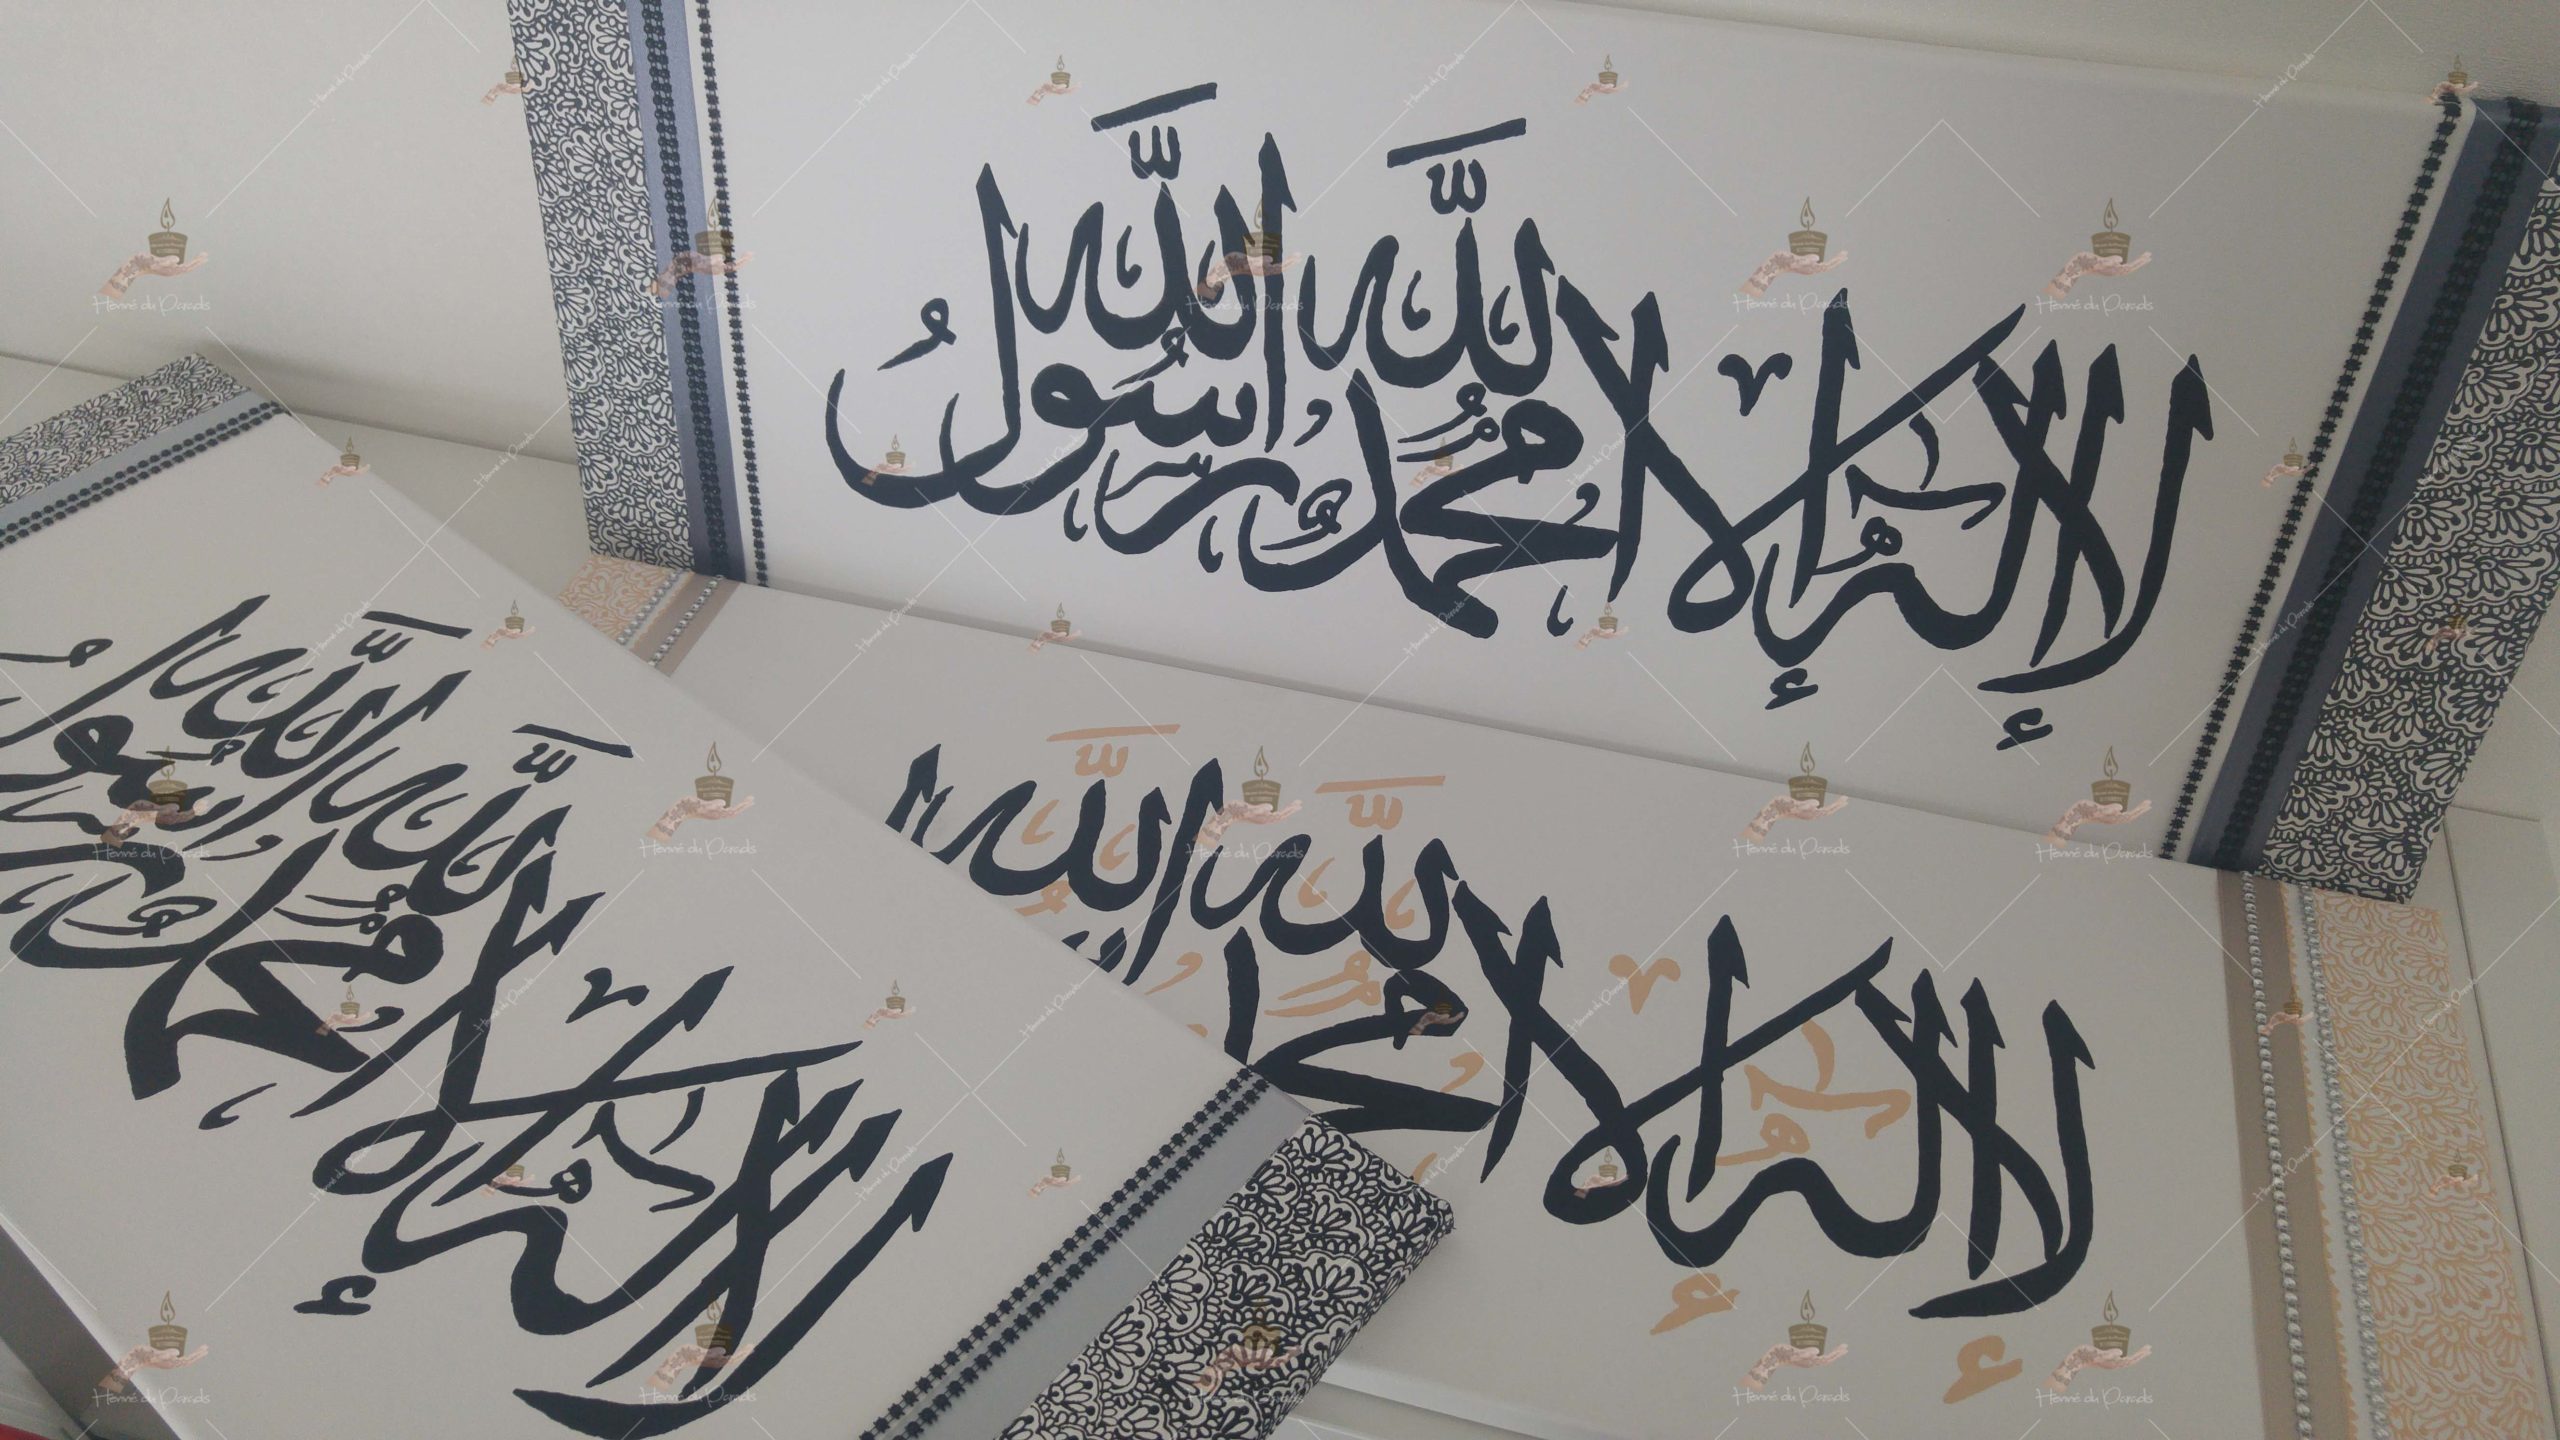 لا إله إلا الله محمد رسول الله
لا إله إلا الله محمد رسول الله
لا إله إلا الله محمد
الله
Henné du Paradis